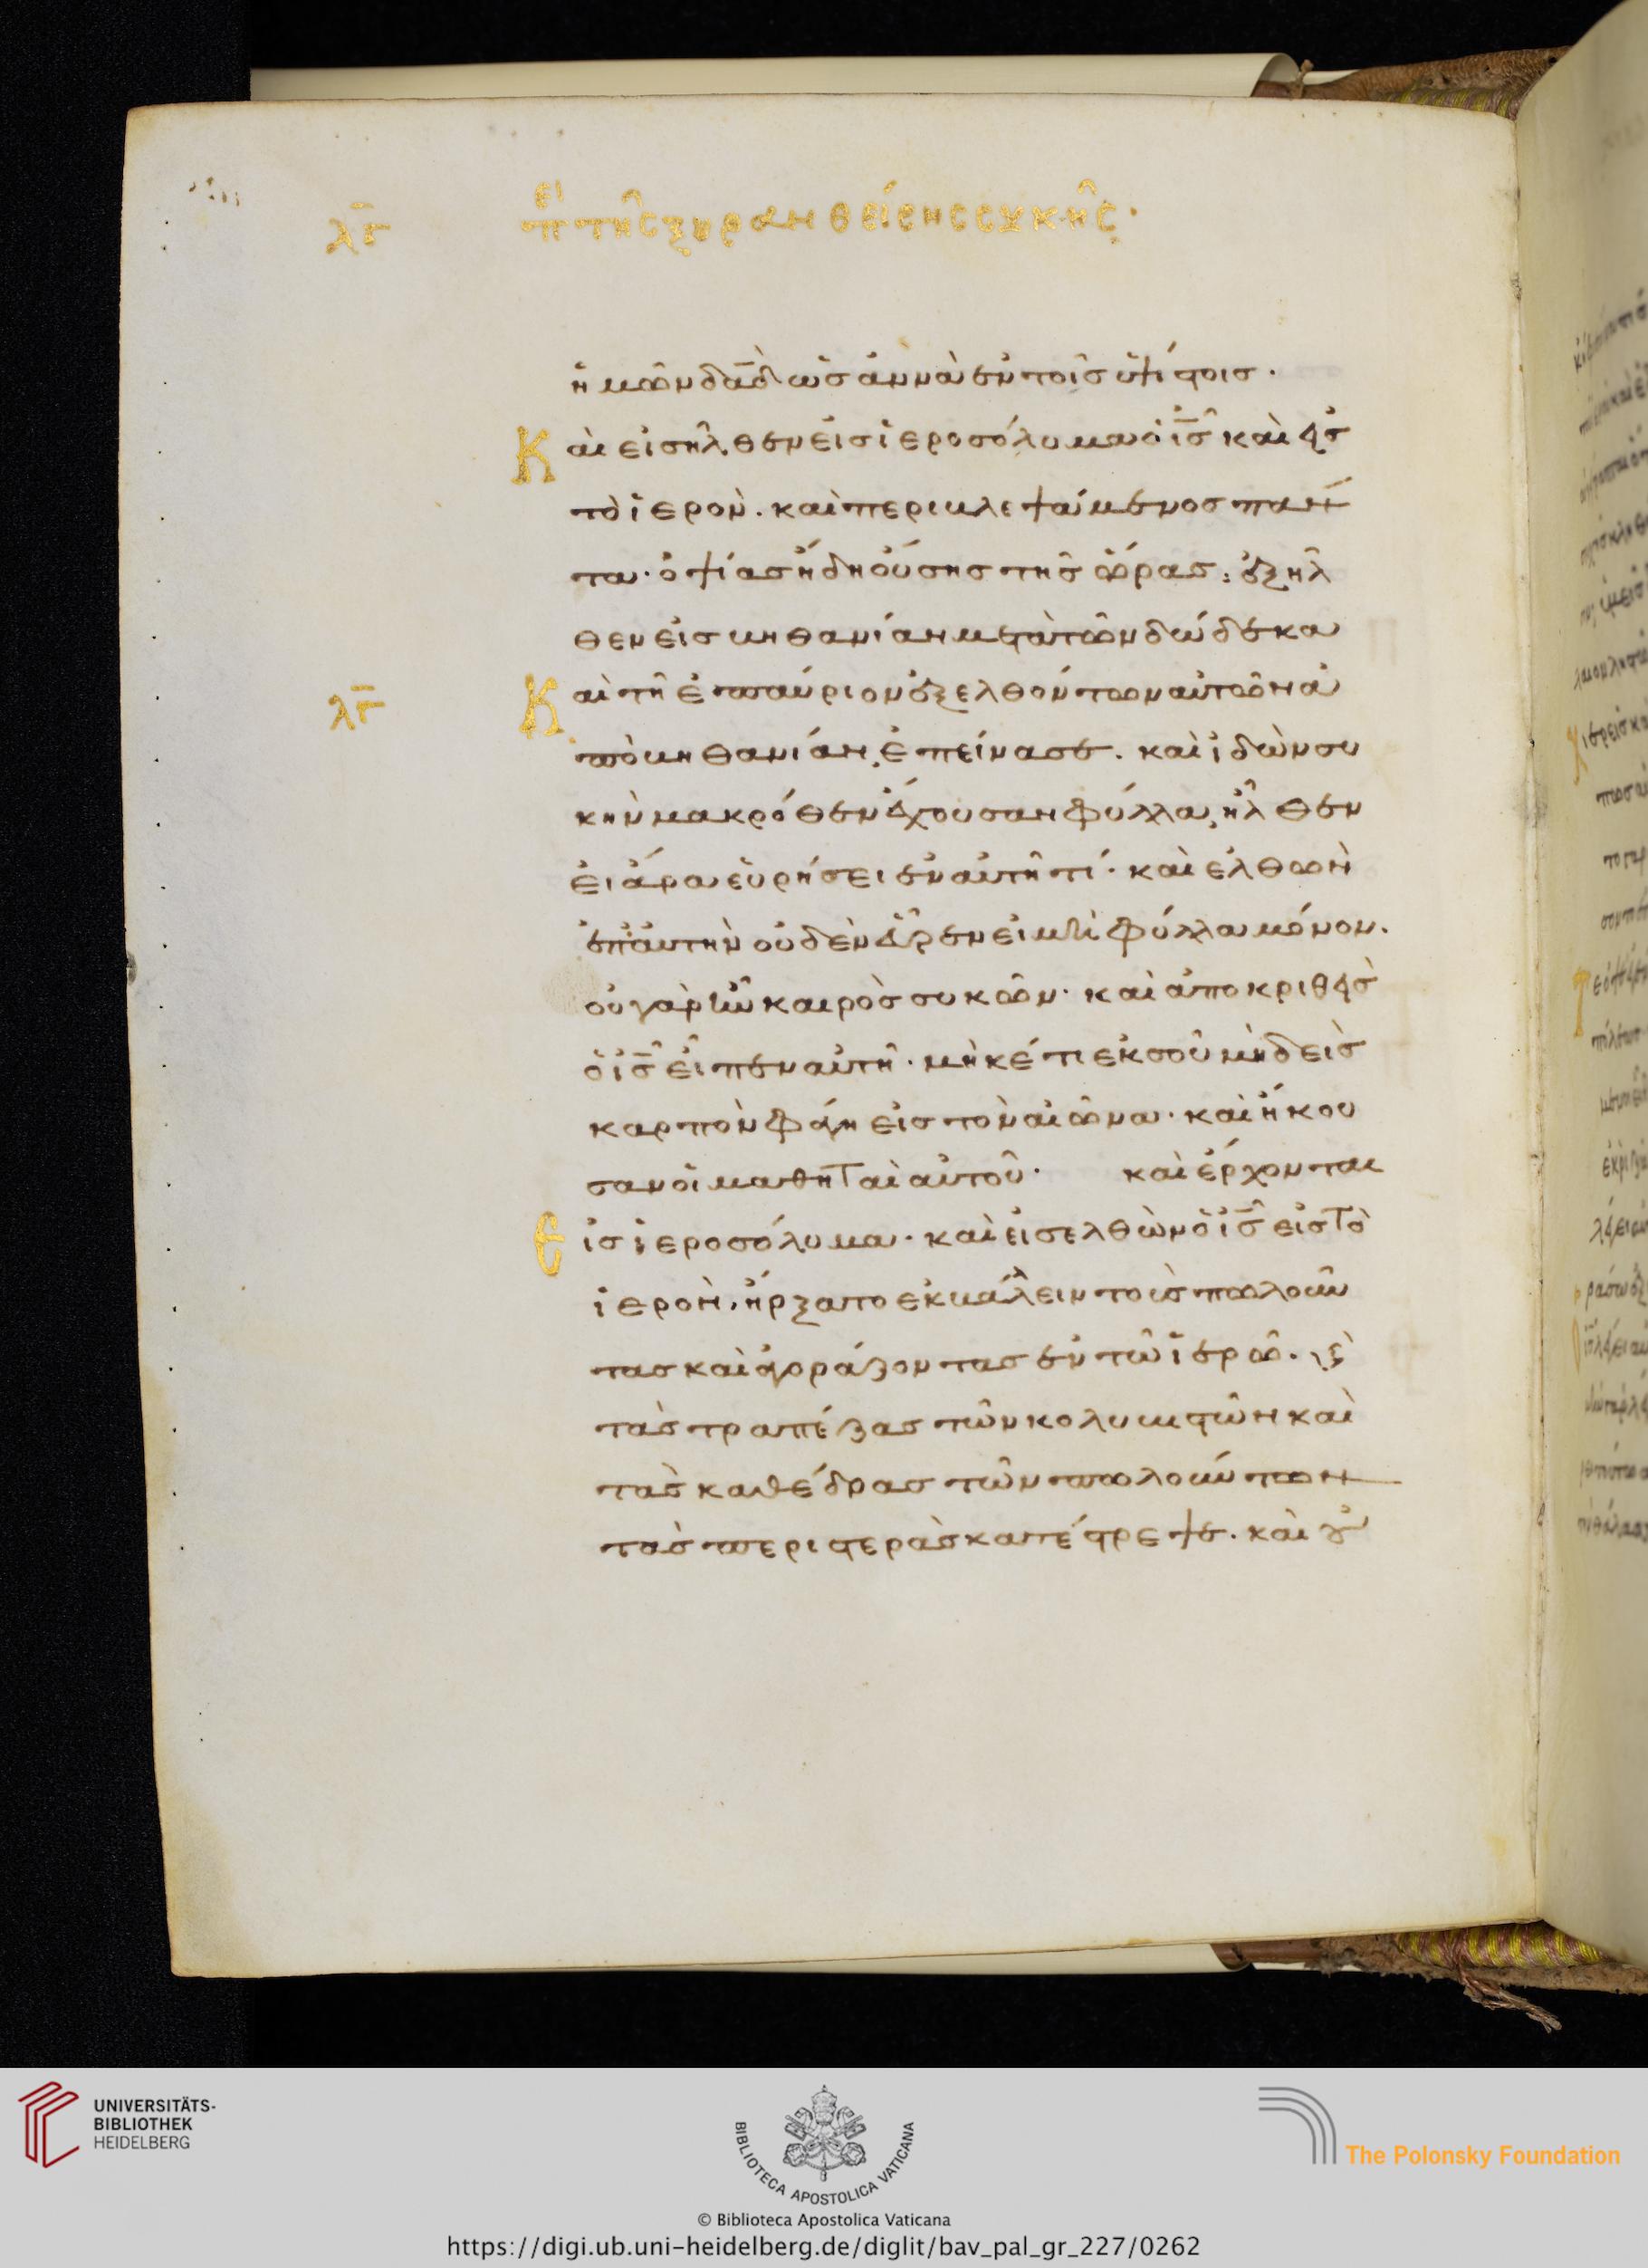 λγ πε τῆς ξηρανθείσης συκῆς·
ἡμῶν δαδ ὡσαννὰ ἐν τοῖς ὑψίστοις·
Καὶ εἰσῆλθεν εἰς ἱεροσόλυμα ὁ ις καὶ εἰς
τὸ ἱερὸν. καὶ περιβλεψάμενος πάν
τα· ὀψίας ἤδη οὔσης τῆς ὥρας: ἐξῆλ
θεν εἰς βηθανίαν μετὰ τῶν δώδεκα
λγ Καὶ τῆ ἐπαύριον ἐξελθόντων αὐτῶν ἀ
πὸ βηθανίαν, ἐπείνασε. καὶ ἰδὼν συ
κὴν μακρόθεν ἔχουσαν φύλλα, ἦλθεν
εἰ ἄρα εὑρήσει ἐν αὐτῆ τί· καὶ ἐλθὼν
ἐπ' αὐτὴν οὐδὲν εὗρεν εἰ μὴ φύλλα μόνον.
οὐ γὰρ ἦν καιρὸς συκῶν· καὶ ἀποκριθεὶς
ὁ ις εἶπεν αὐτῆ· μὴκέτι ἐκ σοῦ μὴδεὶς
καρπὸν φάγη εἰς τὸν αἰῶνα· καὶ ἤκου
σαν οἱ μαθηταὶ αὐτοῦ· καὶ ἔρχονται
Εἰς ἱεροσόλυμα· καὶ εἰσελθὼν ὁ ις εἰς τὸ
ἱερὸν, ἤρξατο ἐκβάλλειν τοὺς πωλοῦν
τας καὶ ἀγοράζοντας ἐν τῶ ἱερῶ. κὲ
τὰς τραπέζας τῶν κολυβιστῶν καὶ
τὰς καθέδρας τῶν πωλούντων
τὰς περιστερὰς κατέστρεψε. καὶ οὐ
UNIVERSITÄTS-
BIBLIOTHEK
HEIDELBERG
BIBLIOTECA APOSTOLICA VATICANA
The Polonsky Foundation
© Biblioteca Apostolica Vaticana
https://digi.ub.uni-heidelberg.de/diglit/bav_pal_gr_227/0262